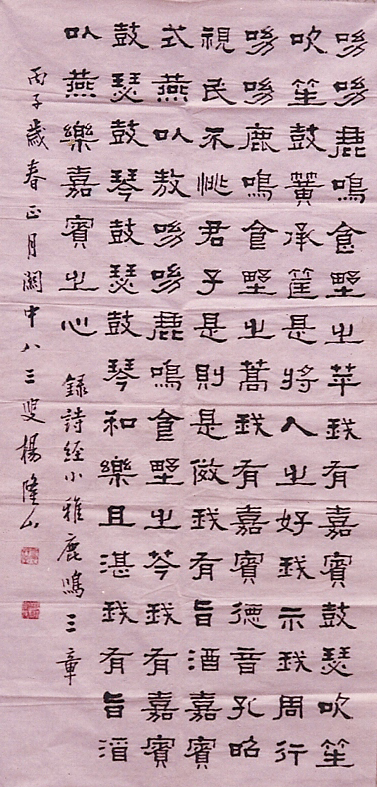 呦呦鹿鳴食野之苹我有嘉賓鼓瑟吹笙
吹笙鼓簧承筐是將人之好我示我周行
呦呦鹿鳴食野之蒿我有嘉賓德音孔昭
視民不恌君子是則是傚我有旨酒嘉賓
式燕以敖呦呦鹿鳴食野之芩我有嘉賓
鼓瑟鼓琴鼓瑟鼓琴和樂且湛我有旨酒
以燕樂嘉賓之心
錄詩經小雅鹿鳴三章
丙子歲春正月關中八三叟楊隆山